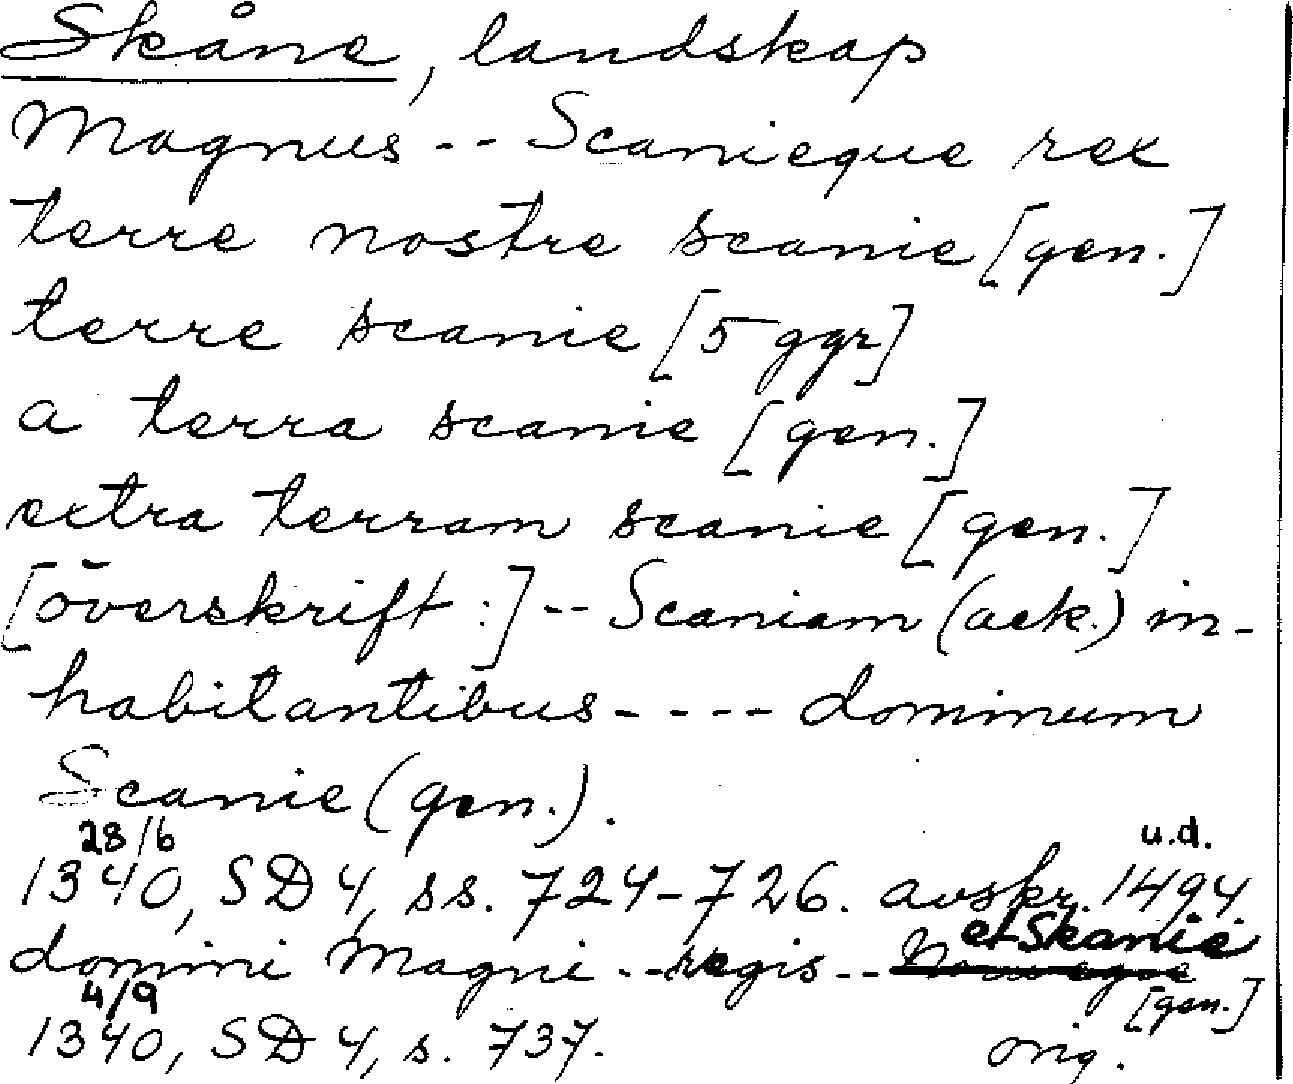 Skåne, landskap
Magnus -- Scanieque rex
terre nostre scanie [gen.]
terre scanie [5 ggr]
a terra scanie [gen.]
extra terram scanie [gen.]
[överskrift:] -- Scaniam (ack.) in-
habitantibus ---- dominum
Scanie (gen.).
28/6 u.d.
1340, SD 4, ss. 724-726. avskr. 1494.
et Skanie
domini Magni -- regis -- Norwegie
4/9 [gen.]
1340, SD 4, s. 737. orig.